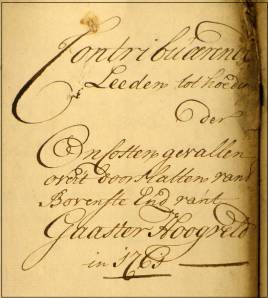 Contribuærende
Leeden tot hoeden
der
Onkosten gevallen
over door
Bovenste End van't
Gaaster Hoogveld
in 1763